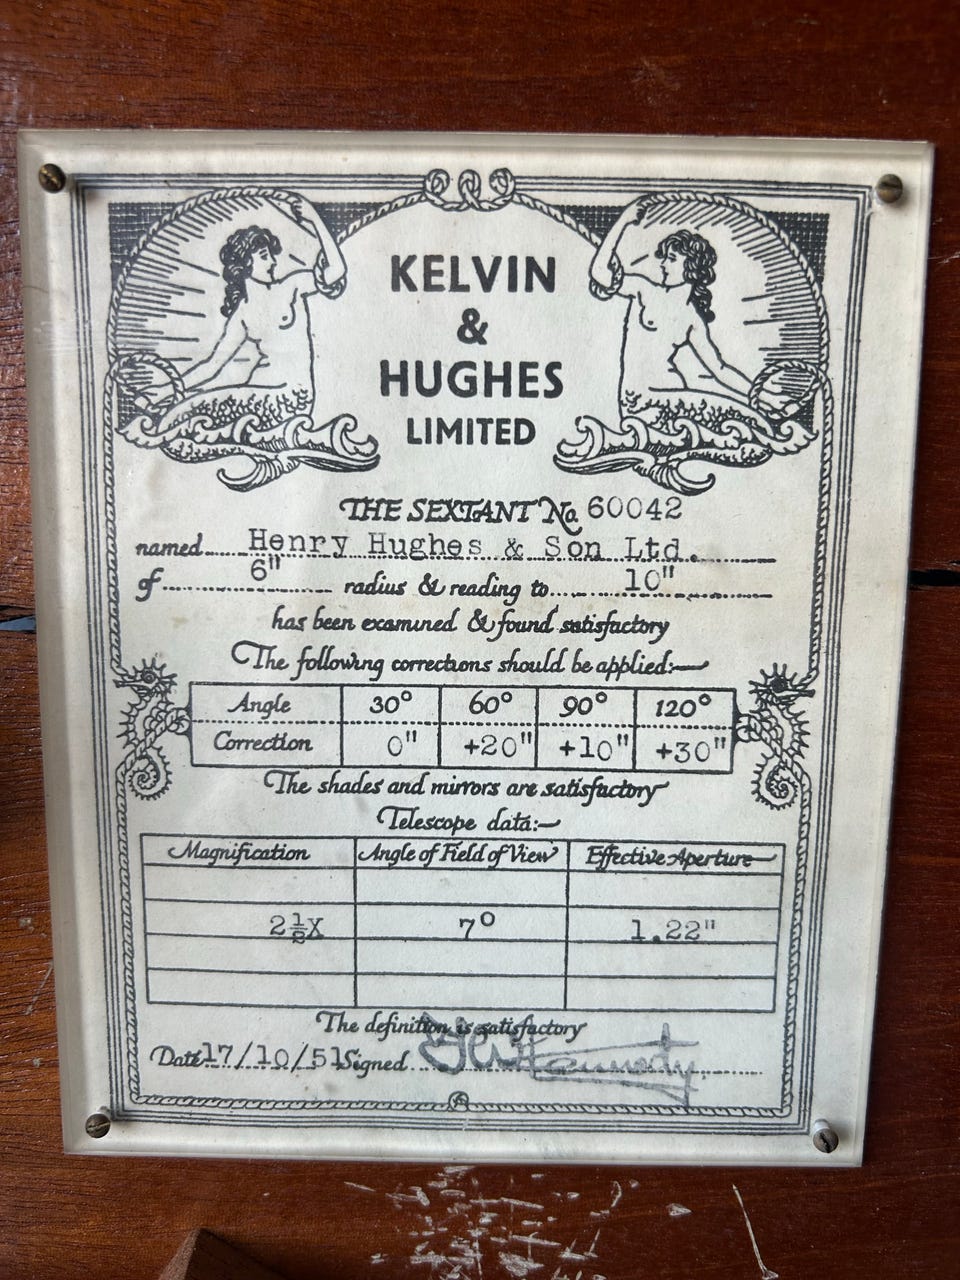 KELVIN
&
HUGHES
LIMITED
THE SEXTANT No. 60042
named Henry Hughes & Son Ltd.
of 6" radius & reading to 10"
has been examined & found satisfactory
The following corrections should be applied:—
Angle 30° 60° 90° 120°
Correction 0" +20" +10" +30"
The shades and mirrors are satisfactory
Telescope data:—
Magnification Angle of Field of View Effective Aperture
2½X 7° 1.22"
The definition is satisfactory
Date 17/10/51 Signed